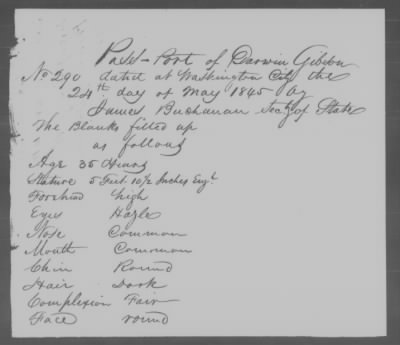 Pass-Port of Darwin Gibbon
No 290 dated at Washington City the
24th day of May 1845 by
James Buchanan Secty of State
The Blanks filled up
as follows
Age 35 Years
Stature 5 Feet 10 1/2 Inches Engl
Forehead high
Eyes Hazle
Nose Common
Mouth Common
Chin Round
Hair Dark
Complexion Fair
Face round